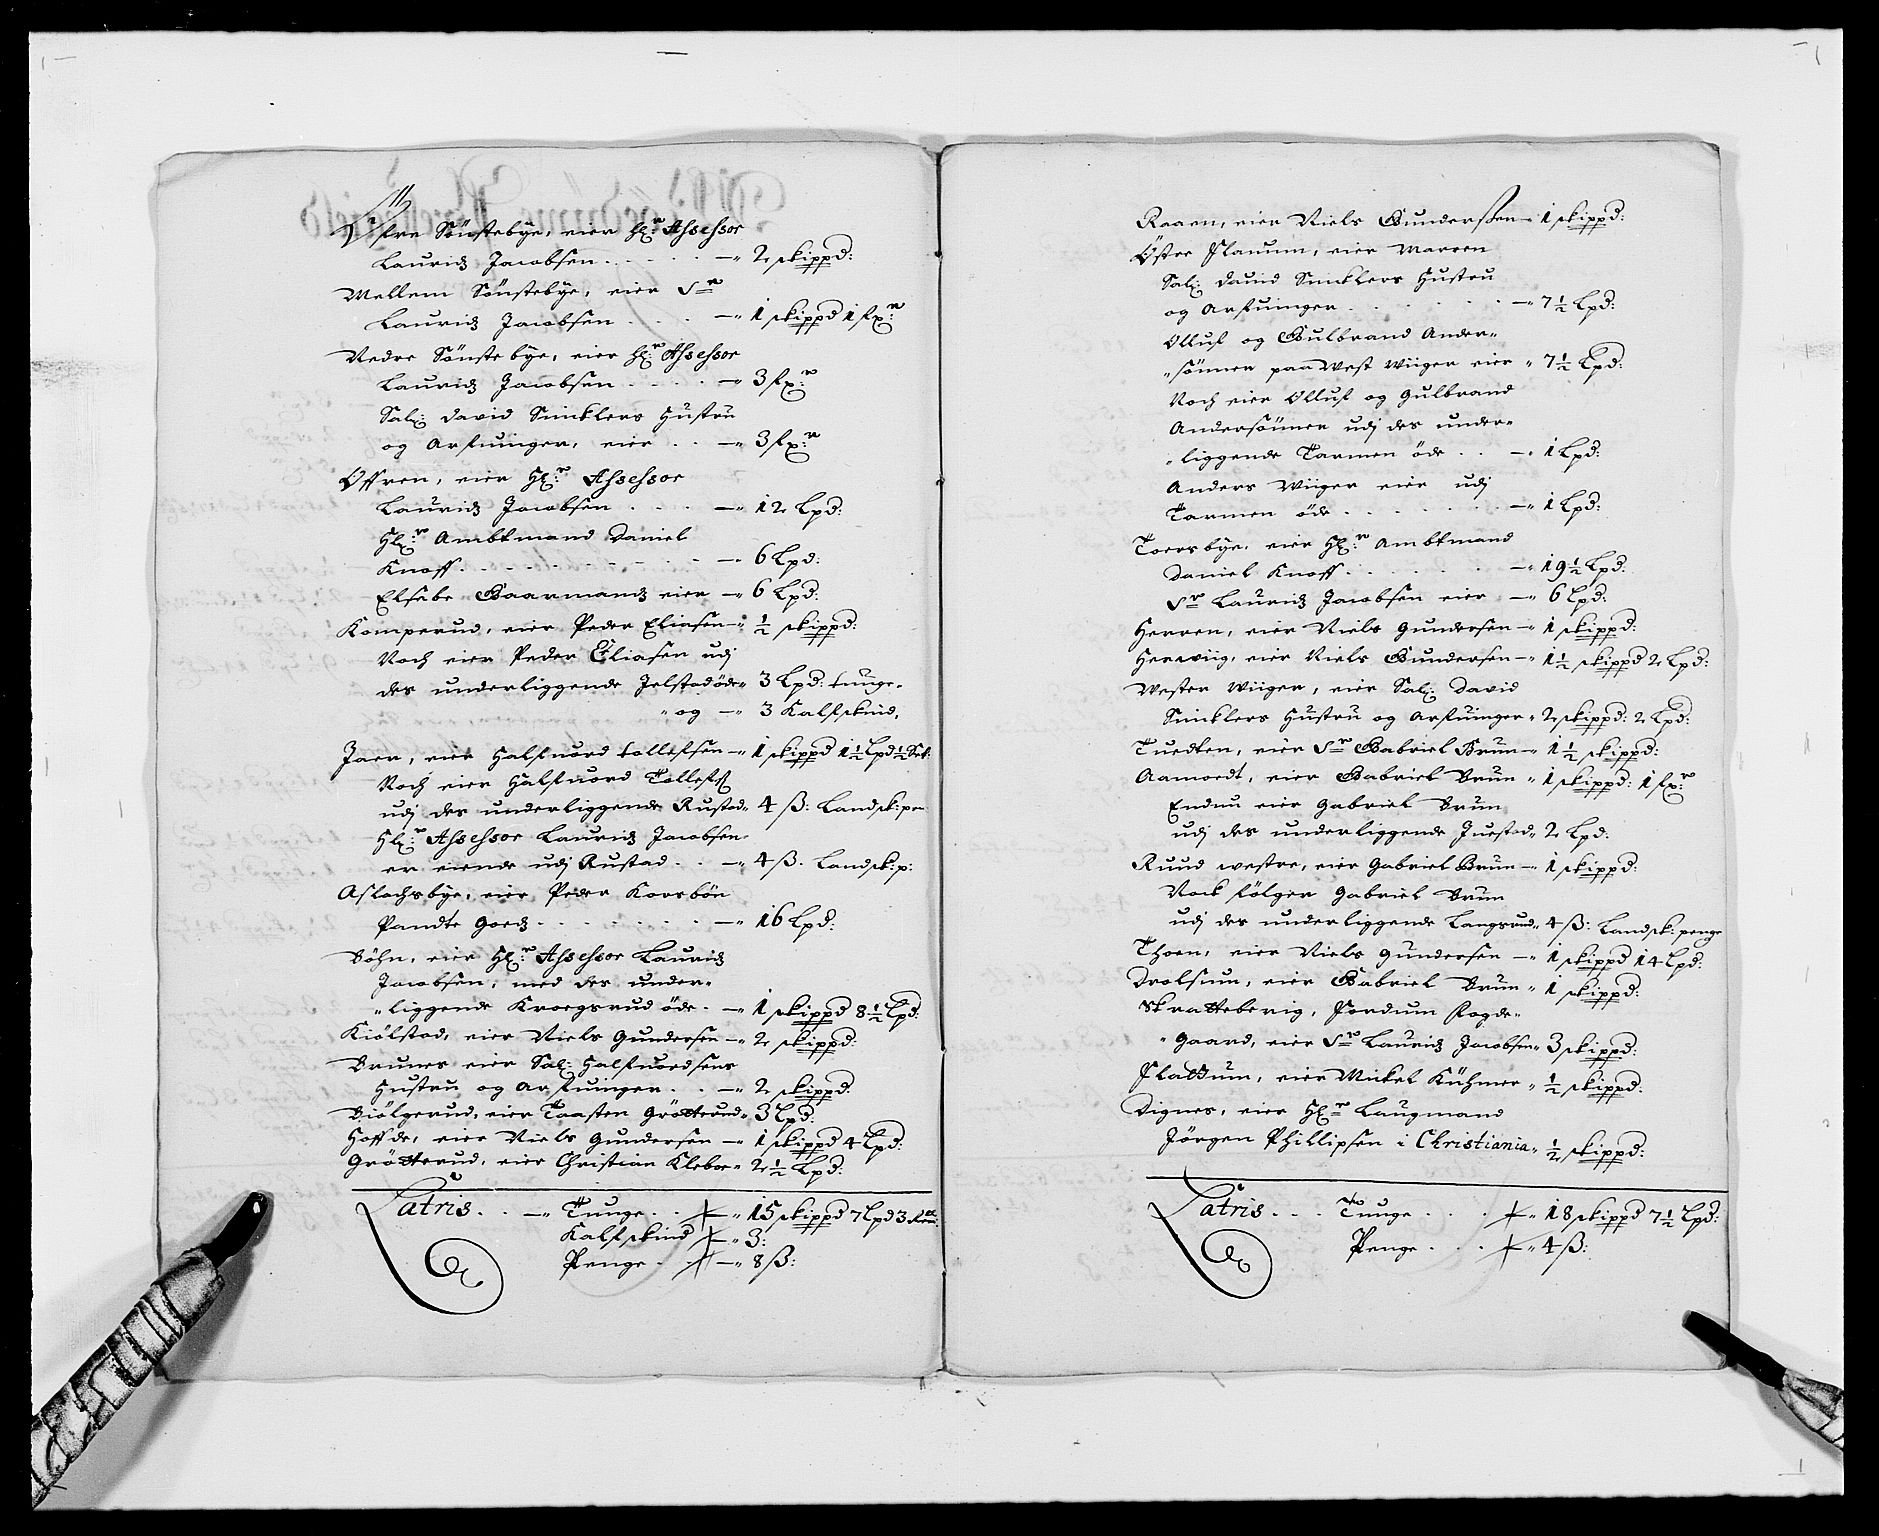 Øfre Sönstebÿe, eier Hr: Assessor
Lauridz Jacobsen . . . . . — " 2 skippd:
Mellem Sönstebÿe, eier Sr
Lauridz Jacobsen . . . . — " 1 skippd 1 fxr:
Nedre Sönstebÿe, eier Hr: Assessor
Lauridz Jacobsen . . . . — " 3 fxr:
Sal: David Sinklers Hustru
og Arfuinger, eier . . — " 3 fxr:
Offren, eier Hr: Assessor
Lauridz Jacobsen . . . — " 12 Lpd:
Hr: Ambtmand Daniel
Knoff . . . . . . . . — " 6 Lpd:
Elsebe Gaarmandz eier — " 6 Lpd:
Komperud, eier Peder Eliasen — " ½ skippd:
Noch eier Peder Eliasen udj
des underliggende Jelstadöde " 3 Lpd: tunge.
" og — " 3 Kalfskind,
Jaer, eier Halfuord tollefsen — " 1 skippd 1½ Lpd ½ Set:
Noch eier Halfuord Tollefs
udj des underliggende Rustad " 4 ß: Landsk: pen
Hr: Assessor Lauridz Jacobsen
er eiende udj Rustad . . — " 4 ß. Landsk: p:
Aslachsbÿe, eier Peder Korsbön
Pandte Goedz . . . . . . — " 16 Lpd:
Böhn, eier Hr: Assessor Lauridz
Jacobsen, med des under "
" liggende Kroegsrud öde . — " 1 skippd 8½ Lpd:
Kiölstad, eier Niels Gundersen — " 2 skippd:
Brunes eier Sal: Halfuordsens
Hustru og Arfuinger . . — " 2 skippd:
Biölgerud, eier Taasten Grötterud " 3 Lpd:
Hoffde, eier Niels Gundersen — " 1 skippd 4 Lpd:
Grötterud, eier Christian Kleboe " 2½ Lpd:
Latris . . — " Tunge . . — " 15 skippd 7 Lpd 3
Kalfskind — " 3:
Penge . — " 8 ß:
Raaen, eier Niels Gundersen — " 1 skippd:
Öster Flauum, eier Marren
Sal: Dauid Sinklers Hustru
og Arfuinger . . . . . . — " 7½ Lpd:
Olluf og Gulbrand Ander "
" sönner paa West Wiiger eier " 7½ Lpd:
Noch eier Olluf og Gulbrand
Andersönner udj des under "
" liggende Tarmen öde . . — " 1 Lpd:
Anders Wiiger eier udj
Tarmen öde . . . . . . . — " 1 Lpd:
Toersbÿe, eier Hr: Ambtmand
Daniel Knoff . . . . . . — " 19½ Lpd:
Sr Lauridz Jacobsen eier — " 6 Lpd:
Herren, eier Niels Gundersen — " 1 skippd:
Herwiig, eier Niels Gundersen — " 1½ skippd 2 Lpd:
Wester Wiiger, eier Sal: David
Sincklers Hustru og Arfuinger " 2 skippd: 2 Lpd:
Tuedten, eier Sr Gabriel Brun — " 1½ skippd:
Aamoedt, eier Gabriel Brun " 1 skippd: 1 fxr:
Endnu eier Gabriel Brun
udj des underliggende Juestad " 2 Lpd:
Ruud westre, eier Gabriel Brun — " 1 skippd:
Nock fölger Gabriel Brun
udj des underliggende Langerud " 4 ß: Landsk: penge
Thoen, eier Niels Gundersen — " 1 skippd 14 Lpd:
Drolsum, eier Gabriel Brun " 1 skippd:
Skratteberig, fordum fogde "
" gaard, eier Sr Lauridz Jacobsen " 3 skippd:
Flattum, eier Mickel Kühmer " ½ skippd:
Dignes, eier Hr Laugmand
Jörgen Phillipsen i Christiania " ½ skippd:
Latris . . . Tunge . . . — " 18 skippd 7½ Lpd:
Penge . . . — " 4 ß: